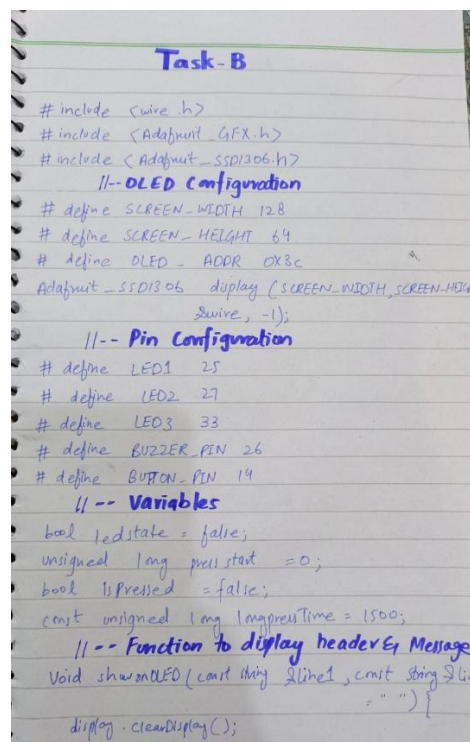 Task-B
# include <wire.h>
# include <Adafruit_GFX.h>
# include <Adafruit_SSD1306.h>
//-- OLED Configuration
# define SCREEN_WIDTH 128
# define SCREEN_HEIGHT 64
# define OLED_ADDR 0X3c
Adafruit_SSD1306 display (SCREEN_WIDTH, SCREEN_HEIG
&wire, -1);
//-- Pin Configuration
# define LED1 25
# define LED2 27
# define LED3 33
# define BUZZER_PIN 26
# define BUTTON_PIN 14
// -- Variables
bool ledstate = false;
unsigned long press start = 0;
bool isPressed = false;
const unsigned long longpressTime = 1500;
// -- Function to display header & Message
Void showonOLED (const string &line1, const string &li
= " ") {
display.clearDisplay();